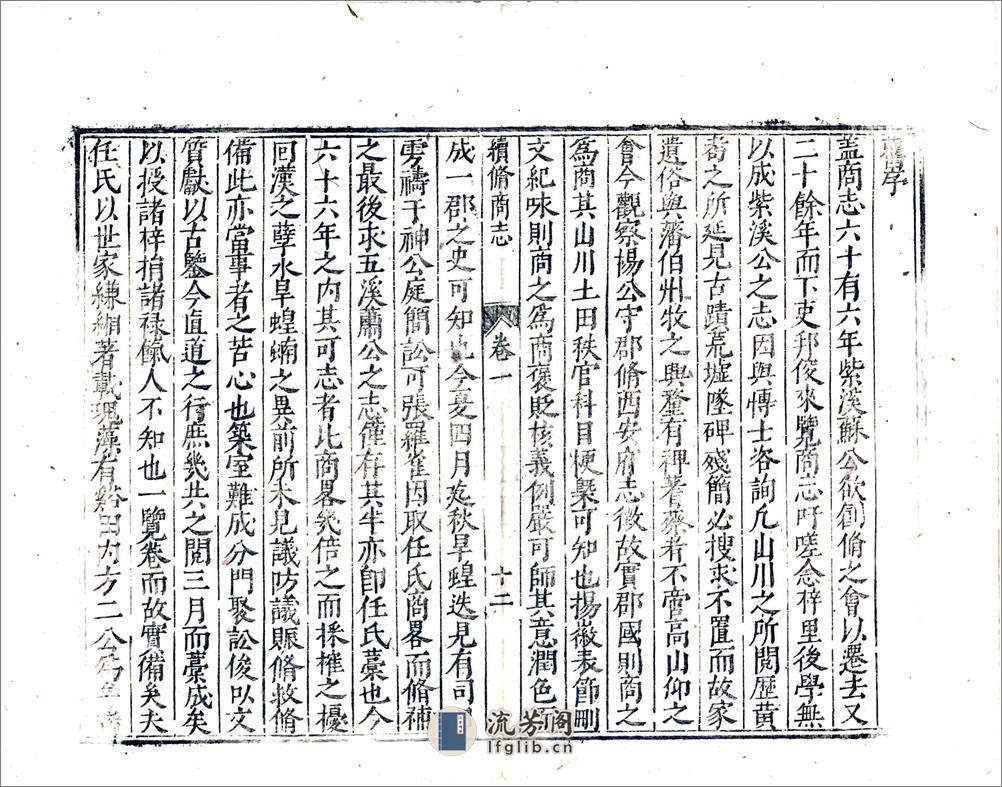 蓋商志六十有六年紫溪蘇公欲創脩之會以遷去又
三十餘年而下吏邦俊來覽商志吁嗟念梓里後學無
以成紫溪公之志因與博士咨詢凡山川之所閱歷黃
耉之所延見古蹟荒墟墜碑殘簡必搜求不置而故家
遺俗與藩伯州牧之興釐有裨蓍蔡者不啻高山仰之
會今觀察楊公守郡脩西安府志徵故實郡國則商之
爲商其山川土田秩官科目梗槩可知也揚徽表節刪
文紀味則商之爲商褒貶核義例嚴可師其意潤色
續脩商志
卷一
十二
成一郡之史可知也今夏四月迄秋旱蝗迭見有司
雩禱于神公庭簡訟可張羅雀因取任氏商畧而脩補
之最後求五溪蕭公之志僅存其半亦即任氏藁也今
六十六年之内其可志者比商畧幾倍之而採榷之擾
回漢之孽水旱蝗蝻之異前所未見議防議賑脩救脩
備此亦當事者之苦心也築室難成分門聚訟俊以文
質獻以古鑒今直道之行庶幾共之閱三月而藁成矣
以授諸梓捐諸祿餼人不知也一覽卷而故實備矣夫
任氏以世家縑緗著載瓌漢有谿田内方二公
流芳阁
lfglib.cn